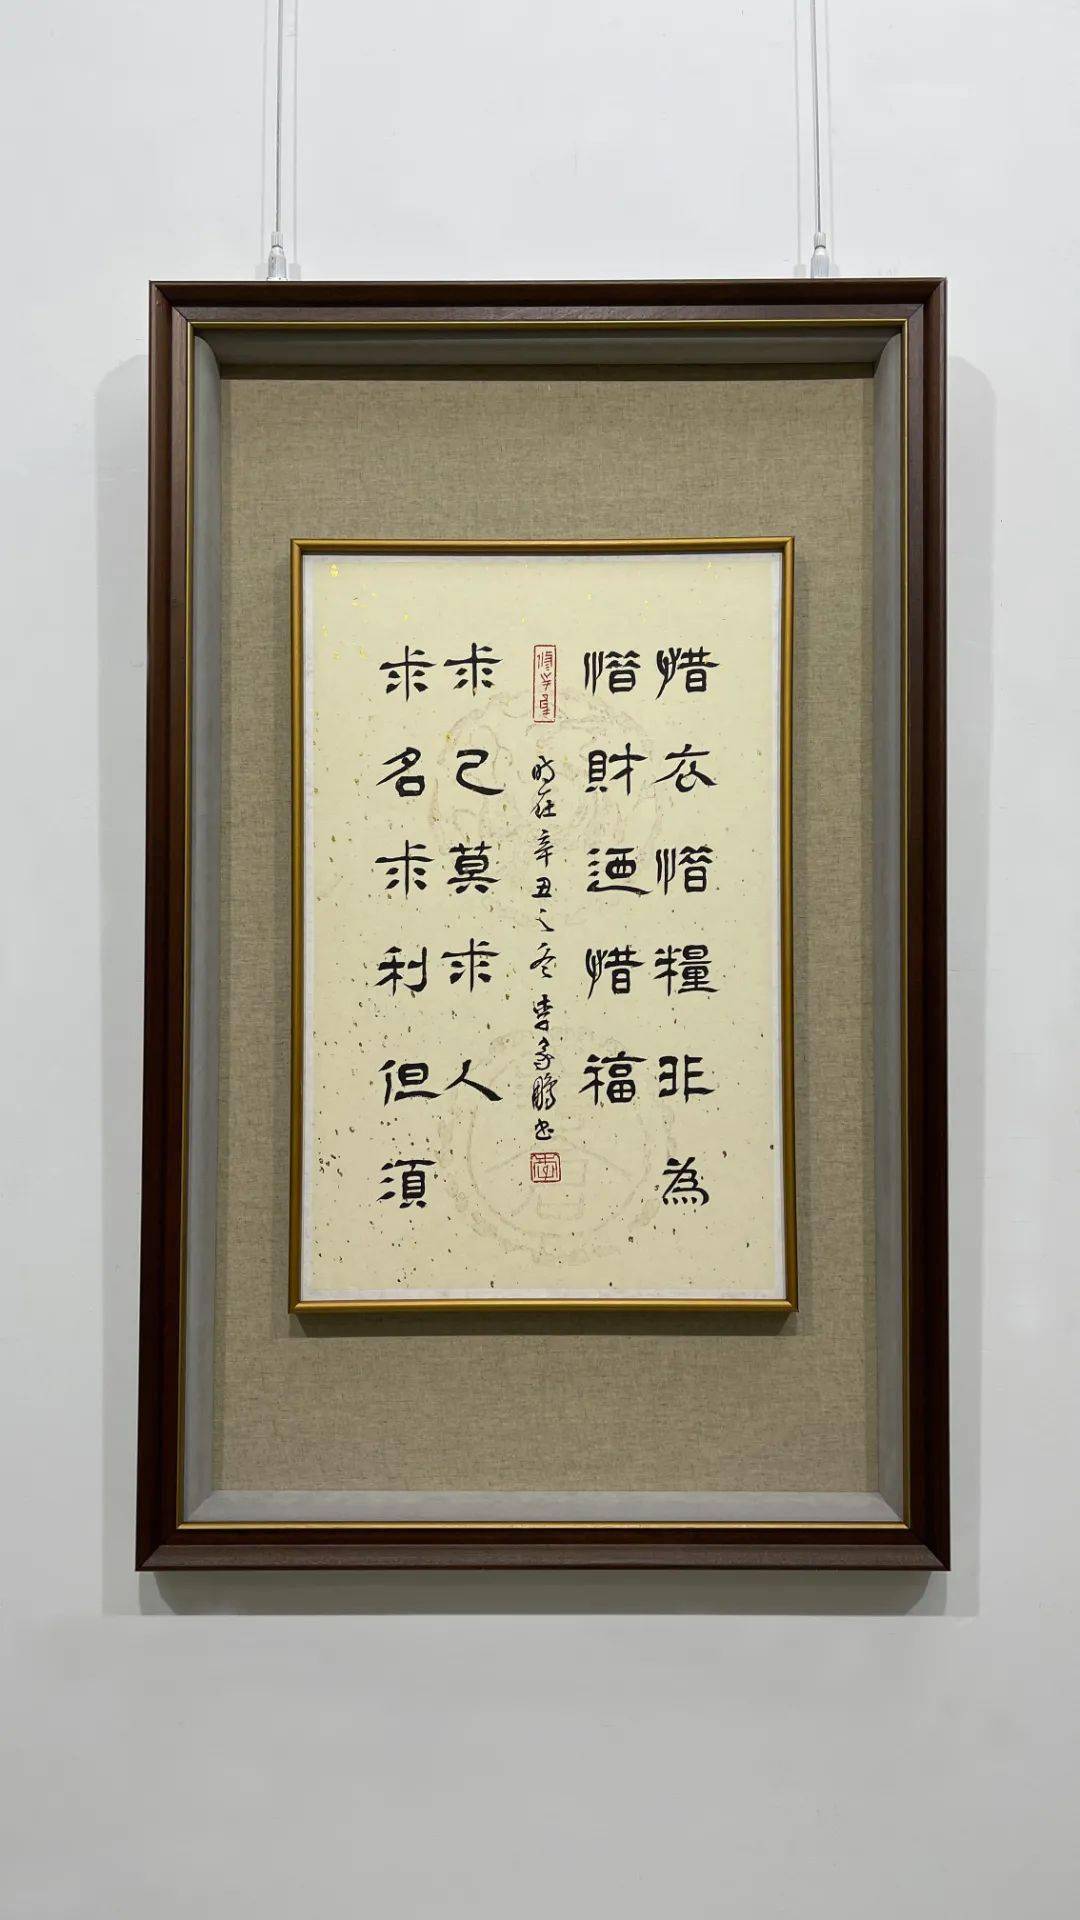 惜衣惜糧非為
惜財迺惜福
求名求利但須
求己莫求人
時在辛丑之冬 李 鵬書